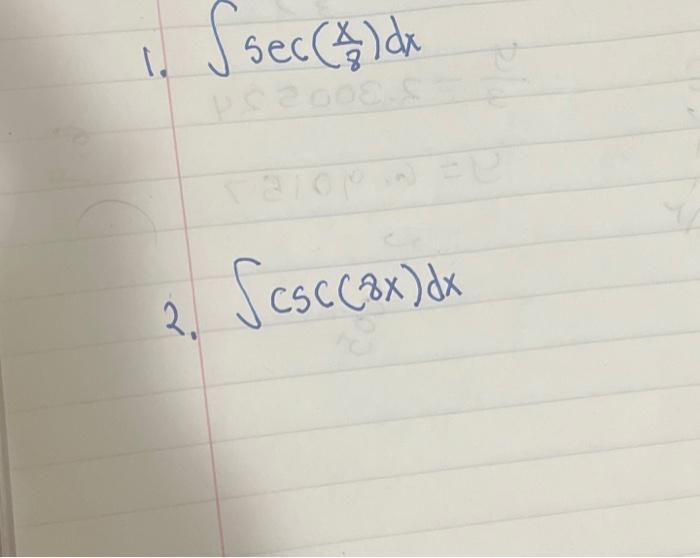 1. ∫ sec(x/8)dx
2. ∫ csc(8x)dx